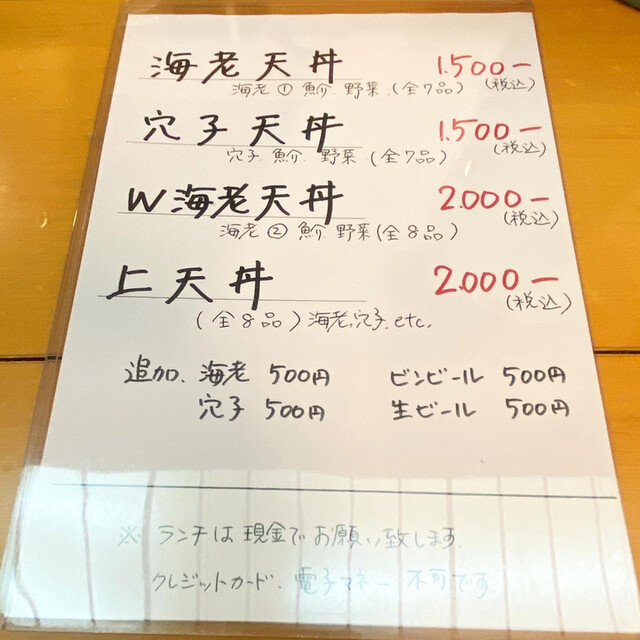 海老天丼 1.500ー
海老① 魚介 野菜 (全7品) (税込)
穴子天丼 1.500ー
穴子 魚介 野菜 (全7品) (税込)
W海老天丼 2.000ー
海老② 魚介 野菜 (全8品) (税込)
上天丼 2.000ー
(全8品) 海老,穴子.etc. (税込)
追加. 海老 500円 ビンビール 500円
穴子 500円 生ビール 500円
※ ランチは現金でお願い致します.
クレジットカード、電子マネー不可です.